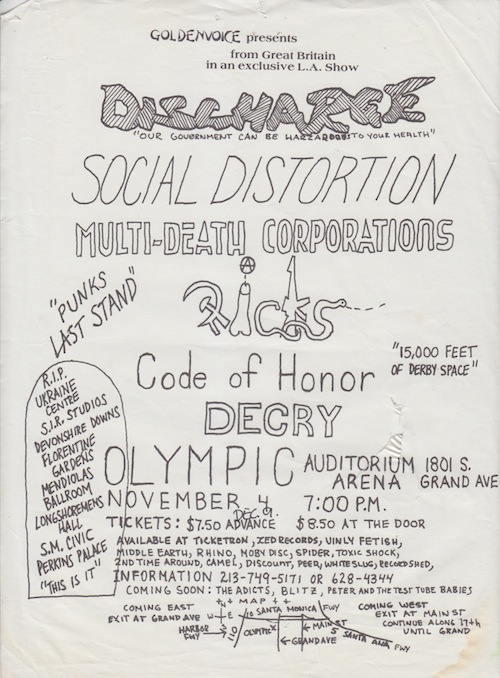 GOLDENVOICE presents
from Great Britain
in an exclusive L.A. Show
DISCHARGE
"OUR GOVERNMENT CAN BE HAZZARDOUS TO YOUR HEALTH"
SOCIAL DISTORTION
MULTI-DEATH CORPORATIONS
DICKS
"PUNKS
LAST STAND"
Code of Honor
"15,000 FEET
OF DERBY SPACE"
DECRY
R.I.P.
UKRAINE
CENTRE
S.I.R. STUDIOS
DEVONSHIRE DOWNS
FLORENTINE
GARDENS
MENDIOLAS
BALLROOM
LONGSHOREMENS
HALL
S.M. CIVIC
PERKINS PALACE
"THIS IS IT"
OLYMPIC AUDITORIUM 1801 S.
ARENA GRAND AVE
NOVEMBER 4 7:00 P.M.
DEC 9.
TICKETS: $7.50 ADVANCE $8.50 AT THE DOOR
AVAILABLE AT TICKETRON, ZED RECORDS, VINLY FETISH,
MIDDLE EARTH, RHINO, MOBY DISC, SPIDER, TOXIC SHOCK,
2ND TIME AROUND, CAMEL, DISCOUNT, PEER, WHITE SLUG, RECORD SHED,
INFORMATION 213-749-5171 OR 628-4344
COMING SOON: THE ADICTS, BLITZ, PETER AND THE TEST TUBE BABIES
COMING EAST
EXIT AT GRAND AVE
MAP
N
W E
S
10 SANTA MONICA FWY
HARBOR
FWY
110
OLYMPIC
MAIN ST
GRAND AVE
5 SANTA ANA FWY
COMING WEST
EXIT AT MAIN ST
CONTINUE ALONG 17th
UNTIL GRAND